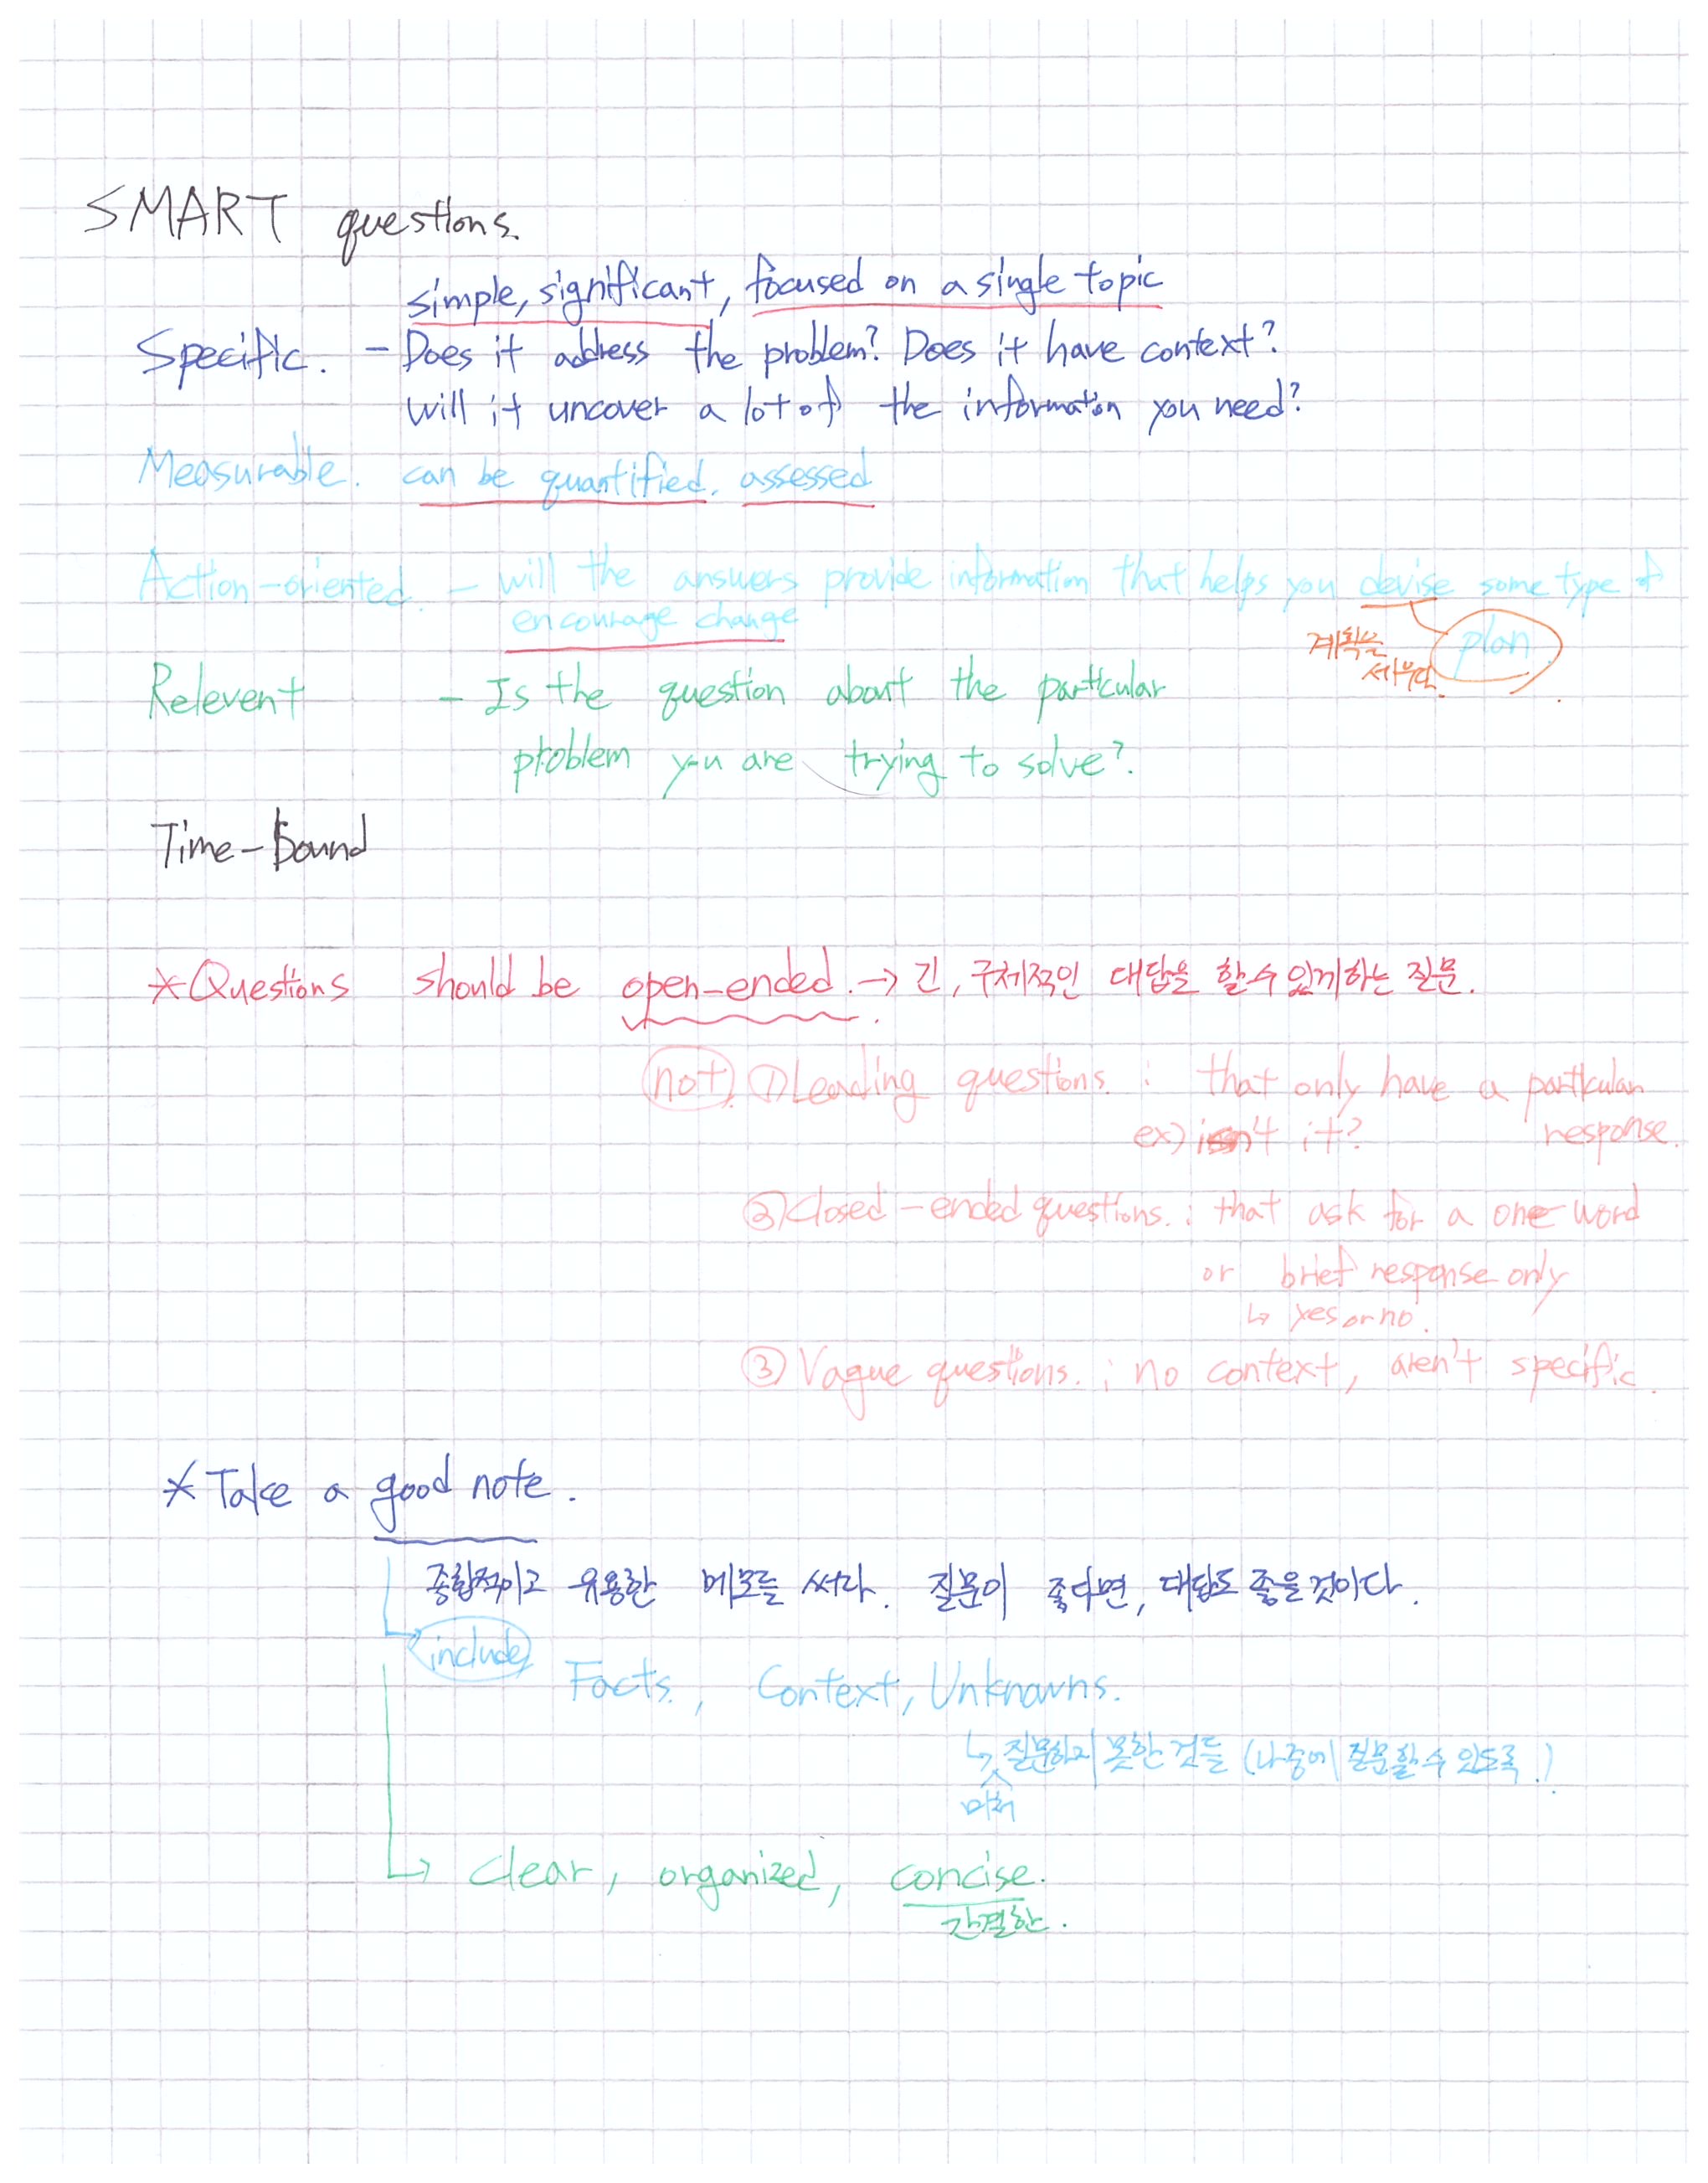 SMART questions.
simple, significant, focused on a single topic
Specific. - Does it address the problem? Does it have context?
will it uncover a lot of the information you need?
Measurable. can be quantified. assessed
Action-oriented. - will the answers provide information that helps you devise some type of
plan.
encourage change
계획을
세우다.
Relevent - Is the question about the particular
problem you are trying to solve?
Time-Bound
*Questions should be open-ended. → 긴, 구체적인 대답을 할 수 있게하는 질문.
not ①Leading questions. : that only have a particular
response.
ex) isn't it?
②Closed-ended questions. : that ask for a one-word
or brief response only
↳ yes or no.
③Vague questions. : no context, aren't specific.
*Take a good note.
종합적이고 유용한 메모들 써라. 질문이 좋다면, 대답도 좋을것이다.
include
Facts, Context, Unknowns.
↳ 질문하지 못한 것들 (나중에 질문할 수 있도록.)
미처
↳ clear, organized, concise.
간결한.